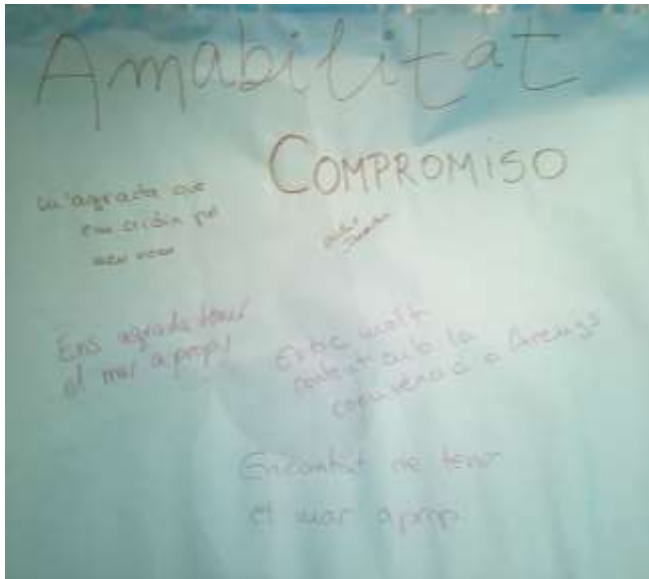 Amabilitat
COMPROMISO
M'agrada que
em cridin pel
meu nom
Ens agrada tenir
el mar a prop!
Estic molt
content amb la
convivència a Arenys
Encantat de tenir
el mar a prop